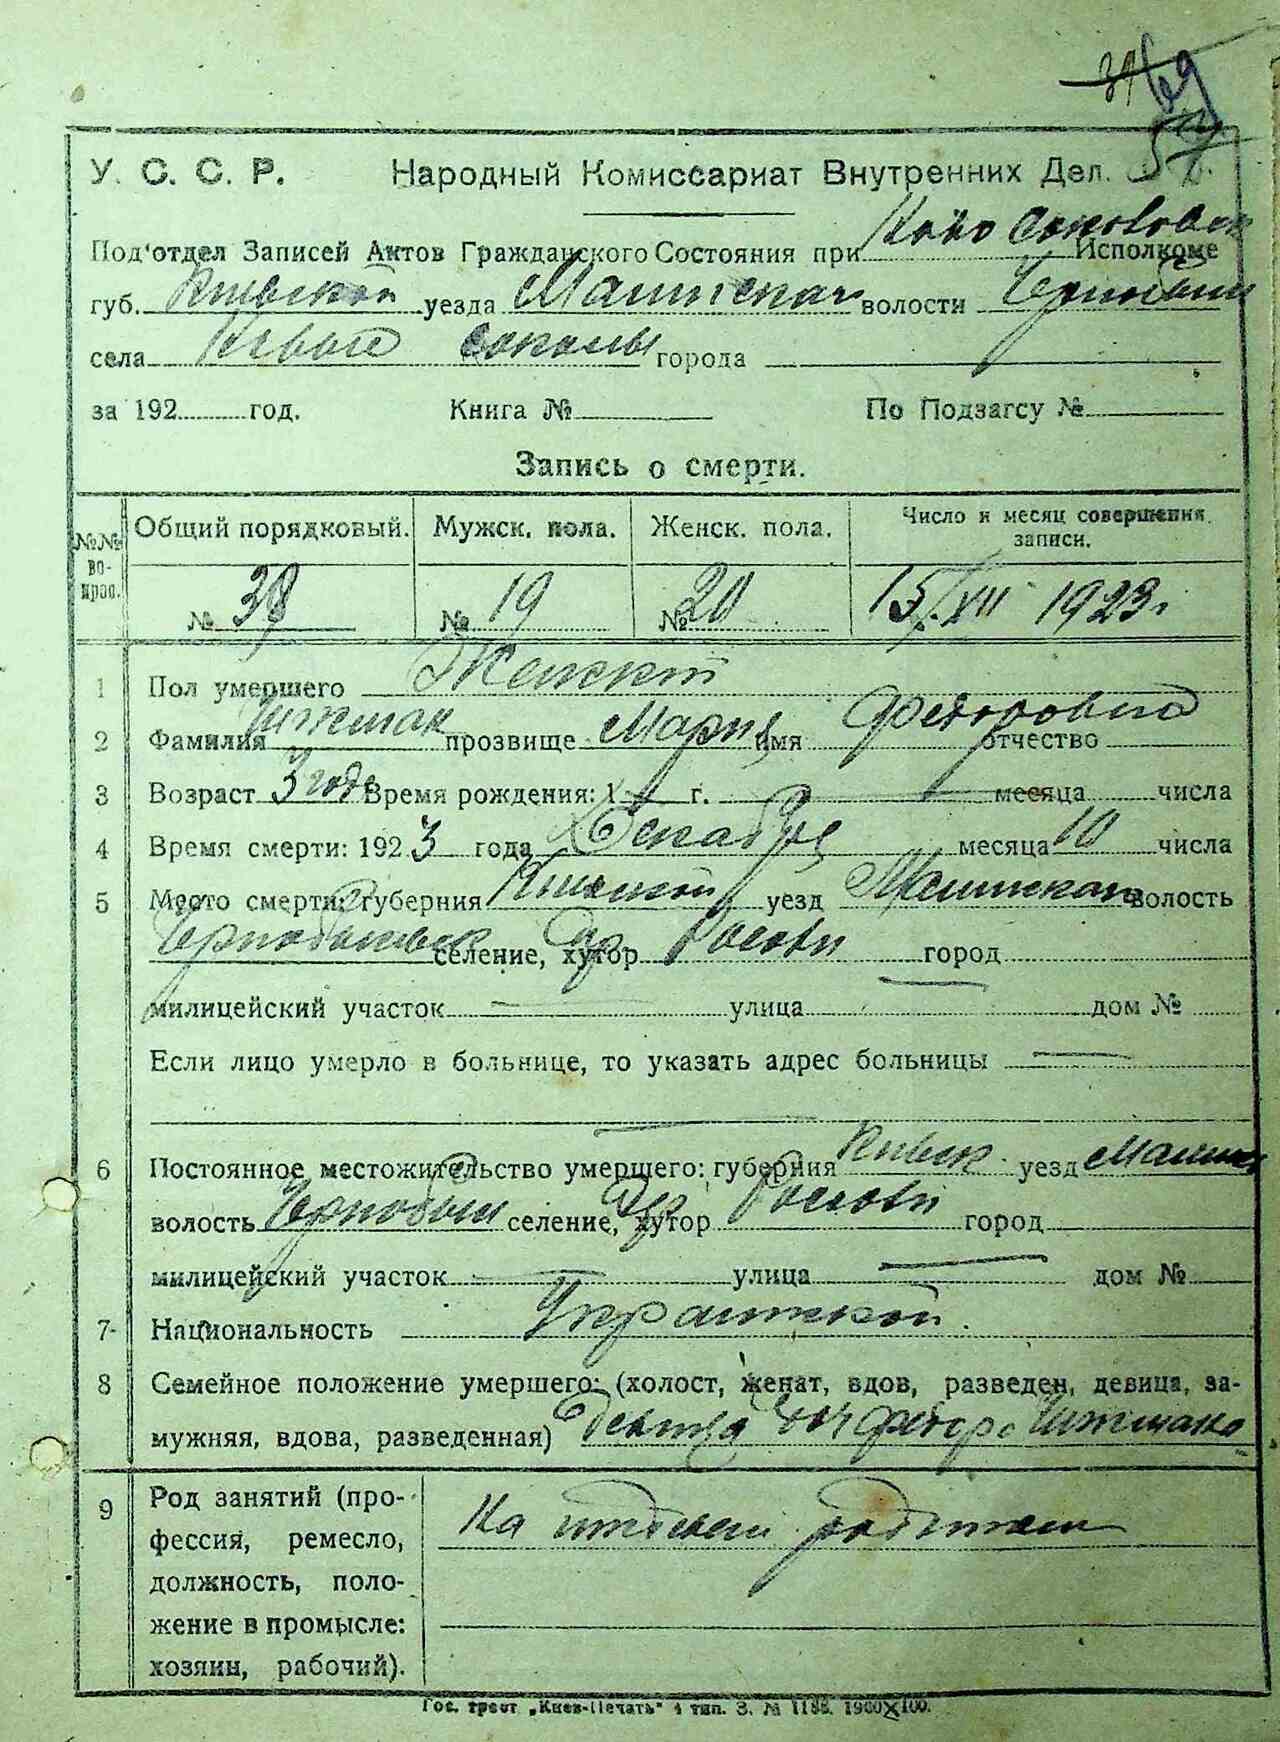 39 69
57
У. С. С. Р. Народный Комиссариат Внутренних Дел.
Под'отдел Записей Актов Гражданского Состояния при Исполкоме
губ. Киевской уезда Малинская волости
села Новые Соколы города
за 192 год. Книга № По Подзагсу №
Запись о смерти.
№№ во- прос. Общий порядковый. Мужск. пола. Женск. пола. Число и месяц совершения записи.
№ 39 № 19 № 20 15/XII 1923 г
1 Пол умершего Женский
2 Фамилия прозвище Мария имя Федоровна отчество
3 Возраст 3 года Время рождения: 1 г. месяца числа
4 Время смерти: 1923 года Декабря месяца 10 числа
5 Место смерти: губерния Киевской уезд Малинская волость
селение, хутор город
милицейский участок улица дом №
Если лицо умерло в больнице, то указать адрес больницы
6 Постоянное местожительство умершего: губерния Киевск уезд Малинск
волость селение, хутор город
милицейский участок улица дом №
7 Национальность
8 Семейное положение умершего: (холост, женат, вдов, разведен, девица, за-
мужняя, вдова, разведенная) девица
9 Род занятий (про-
фессия, ремесло,
должность, поло-
жение в промысле:
хозяин, рабочий).
На родителей
Гос. трест „Киев-Печать" 4 тип. З. № 1188. 1900X100.